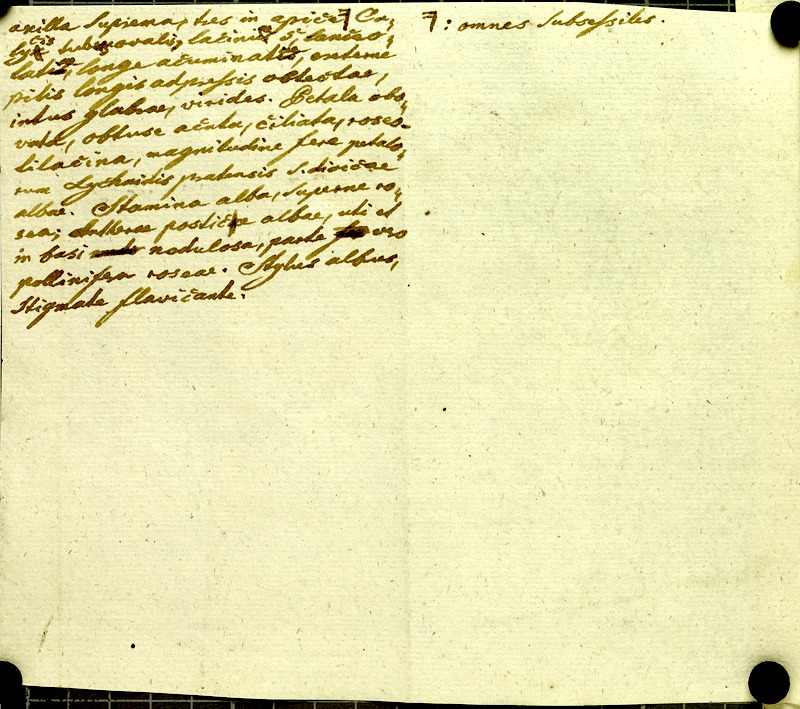 axilla suprema, tres in apice ⁊ Ca,,
lycis tubo ovali, laciniae 5 lanceo,,
latae, longe acuminatae, externe
pilis longis adpressis obtectae,
intus glabrae, virides. Petala obo,,
vata, obtuse acuta, ciliata, roseo-
lilacina, magnitudine fere petalo,,
rum Lychnidis pratensis s. dioicae
albae. Stamina alba, superne ro,,
sea; Antherae postice albae, uti et
in basi nodulosa, parte vero
pollinifera roseae. Stylus albus,
Stigmate flavicante.
⁊: omnes subsessiles.